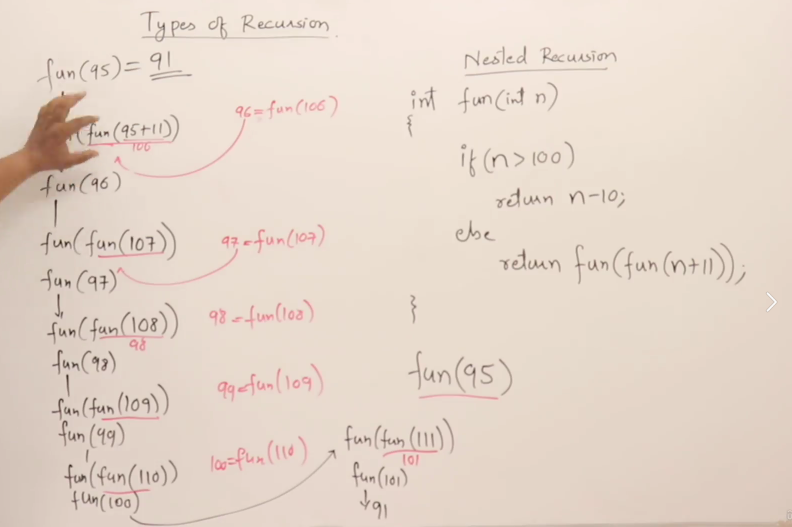 Types of Recursion.
fun(95) = 91
(fun(95+11))
106
96=fun(106)
fun(96)
fun(fun(107))
97=fun(107)
fun(97)
fun(fun(108))
98
98=fun(108)
fun(98)
fun(fun(109))
99=fun(109)
fun(99)
fun(fun(110))
100=fun(110)
fun(100)
fun(fun(111))
101
fun(101)
91
Nested Recursion
int fun(int n)
{
if(n>100)
return n-10;
else
return fun(fun(n+11));
}
fun(95)